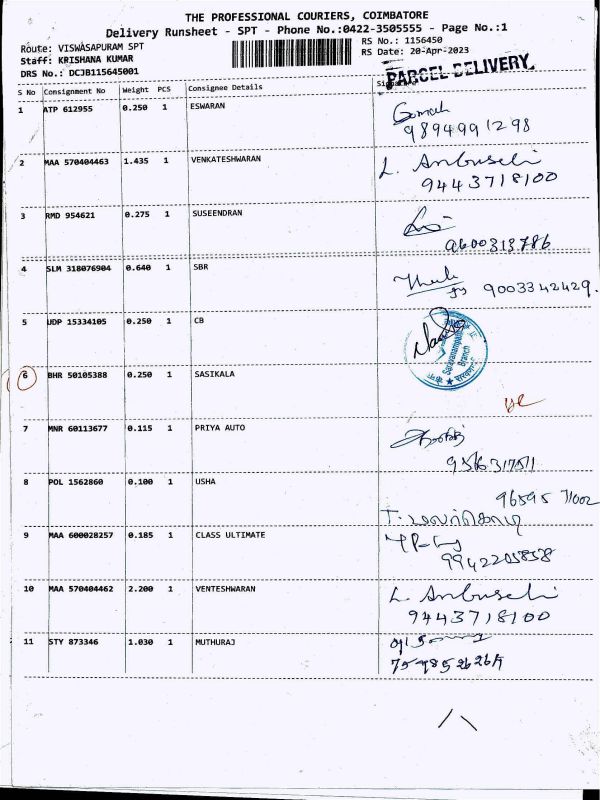 THE PROFESSIONAL COURIERS, COIMBATORE
Delivery Runsheet - SPT - Phone No.:0422-3505555 - Page No.:1
Route: VISWASAPURAM SPT
RS No.: 1156450
Staff: KRISHANA KUMAR
RS Date: 20-Apr-2023
DRS No.: DCJB115645001
PARCEL DELIVERY
S No Consignment No Weight PCS Consignee Details
1 ATP 612955 0.250 1 ESWARAN
9894991298
2 MAA 570404463 1.435 1 VENKATESHWARAN
L. Anbuselvi
9443718100
3 RMD 954621 0.275 1 SUSEENDRAN
9600313786
4 SLM 318076904 0.640 1 SBR
9003342429.
5 UDP 15334105 0.250 1 CB
Saravanampatti
Branch
6 BHR 50105388 0.250 1 SASIKALA
7 MNR 60113677 0.115 1 PRIYA AUTO
8 POL 1562860 0.100 1 USHA
96595 71002
9 MAA 600028257 0.185 1 CLASS ULTIMATE
10 MAA 570404462 2.200 1 VENTESHWARAN
L. Anbuselvi
9443718100
11 STY 873346 1.030 1 MUTHURAJ